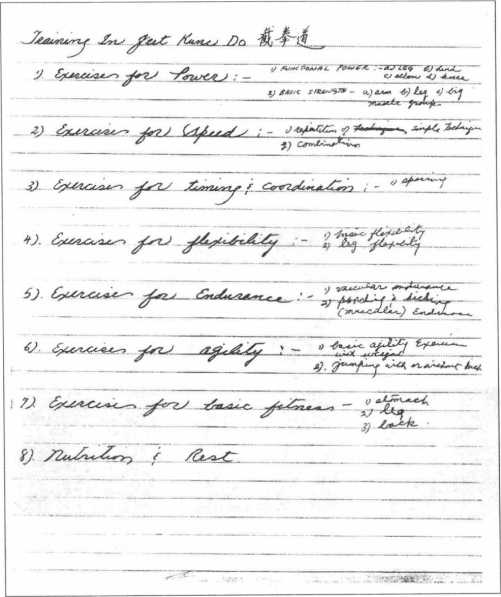 Training In Jeet Kune Do 截拳道
1) Exercises for Power :- 1) FUNCTIONAL POWER :- a) LEG b) hand
c) elbow d) knee
2) BASIC STRENGTH - a) arm b) leg c) big
muscle group.
2) Exercises for Speed :- 1) repetition of simple Technique
2) combination
3) Exercises for timing & coordination :- 1) sparring
4). Exercises for flexibility :- 1) basic flexibility
2) leg flexibility
5). Exercise for Endurance :- 1) vascular endurance
2) punching & kicking
(muscular) Endurance
6). Exercises for agility :- 1) basic agility Exercise
with weight
2). jumping with or without
7). Exercises for basic fitness - 1) stomach
2) leg
3) back.
8) Nutrition & Rest